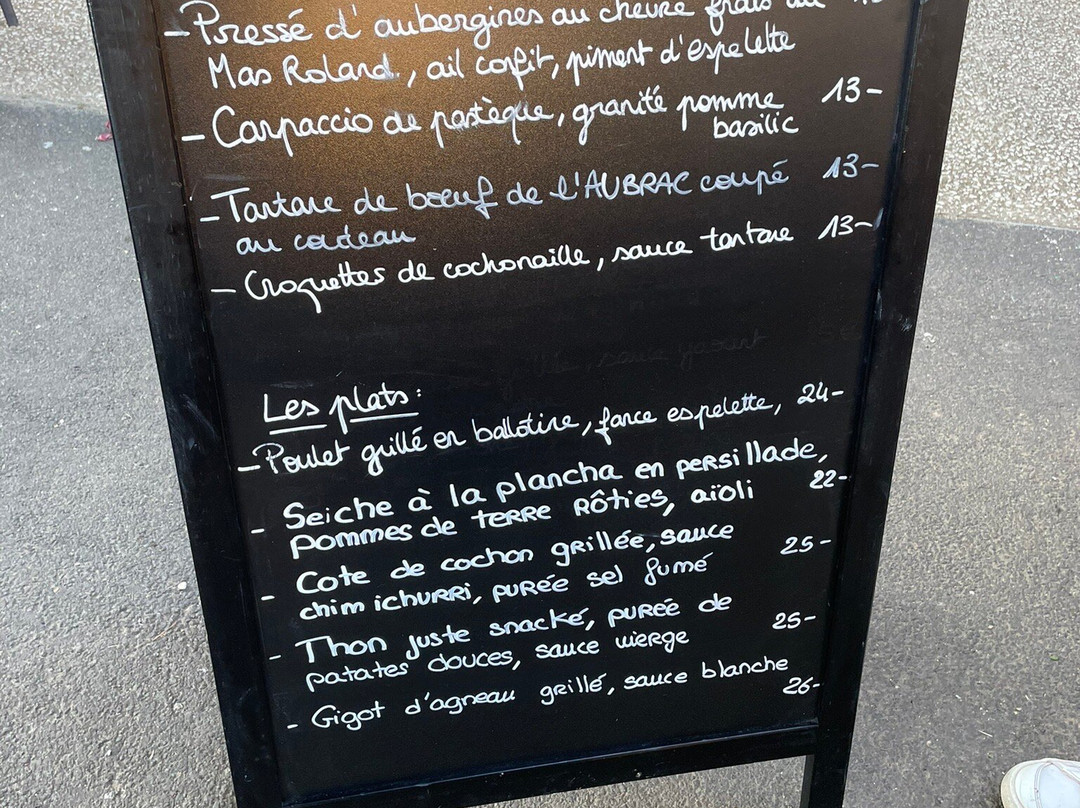 - Pressé d'aubergines au chèvre frais du
Mas Roland, ail confit, piment d'espelette
- Carpaccio de pastèque, granité pomme 13-
basilic
- Tartare de bœuf de l'AUBRAC coupé 13-
au couteau
- Croquettes de cochonaille, sauce tartare 13-
Les plats :
- Poulet grillé en ballotine, farce espelette, 24-
- Seiche à la plancha en persillade,
pommes de terre rôties, aïoli 22-
- Cote de cochon grillée, sauce
chimichurri, purée sel fumé 25-
- Thon juste snacké, purée de
patates douces, sauce vierge 25-
- Gigot d'agneau grillé, sauce blanche
26-